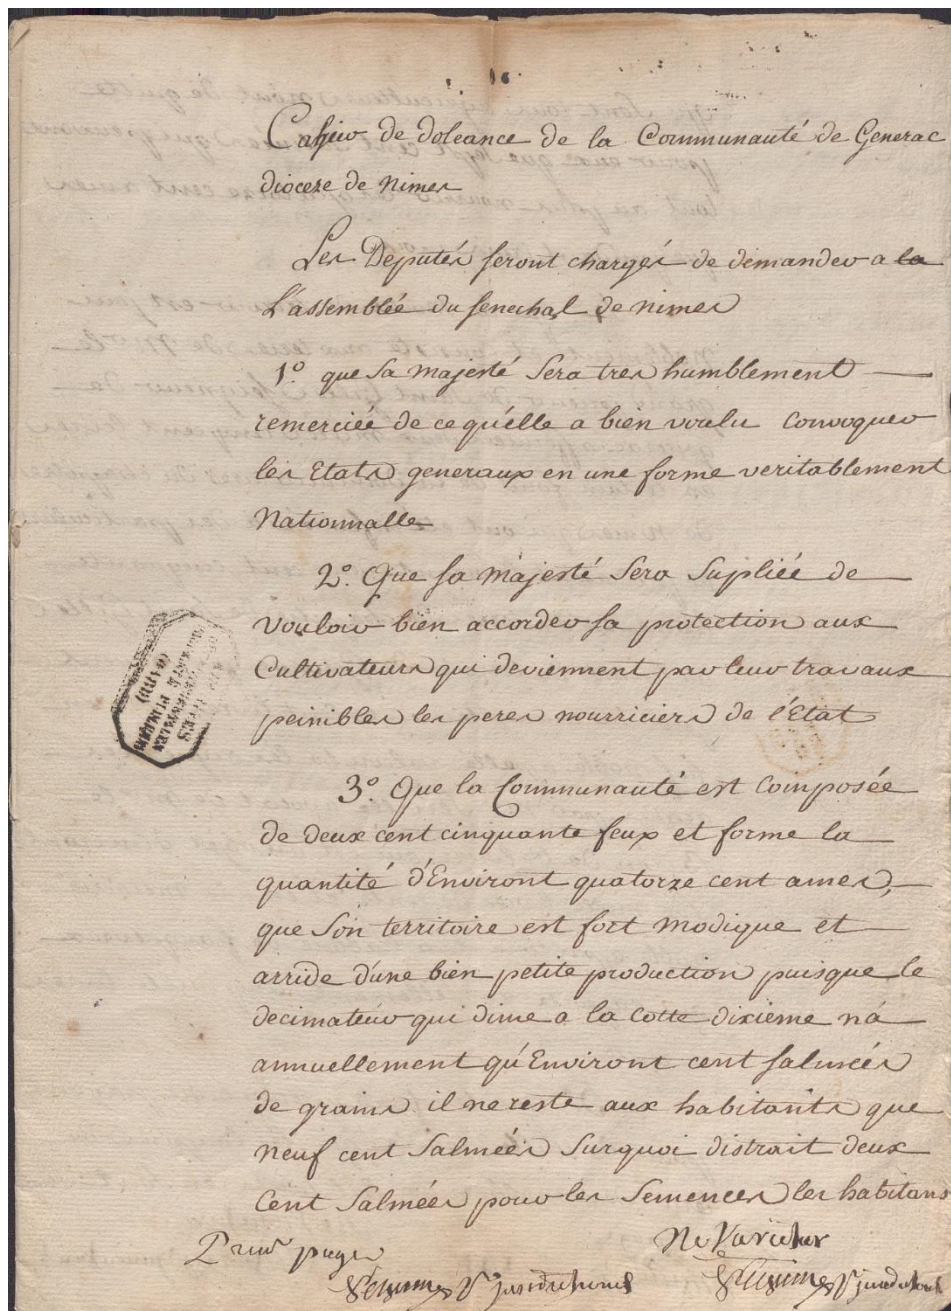 Cahier de doleance de la Communauté de Generac
dioceze de nimes
Les Deputés seront chargés de demander a la
L'assemblée du senechal de nimes
1º. que sa majesté sera tres humblement
remerciée de ce qu'elle a bien voulu convoquer
les Etats generaux en une forme veritablement
Nationnalle
2º. Que sa majesté sera supliée de
vouloir bien accorder sa protection aux
Cultivateurs qui deviennent par leur travaux
peinibles les peres nourriciers de l'Etat
3º Que la Communauté est composée
de deux cent cinquante feux et forme la
quantité d'Environt quatorze cent ames,
que son territoire est fort modique et
arride d'une bien petite production puisque le
decimateur qui dime a la cotte dixième n'a
annuellement qu'Environt cent salmées
de grains il ne reste aux habitants que
neuf cent salmées surquoi distrait deux
cent salmées pour les semences les habitans
page
Ne Varietur